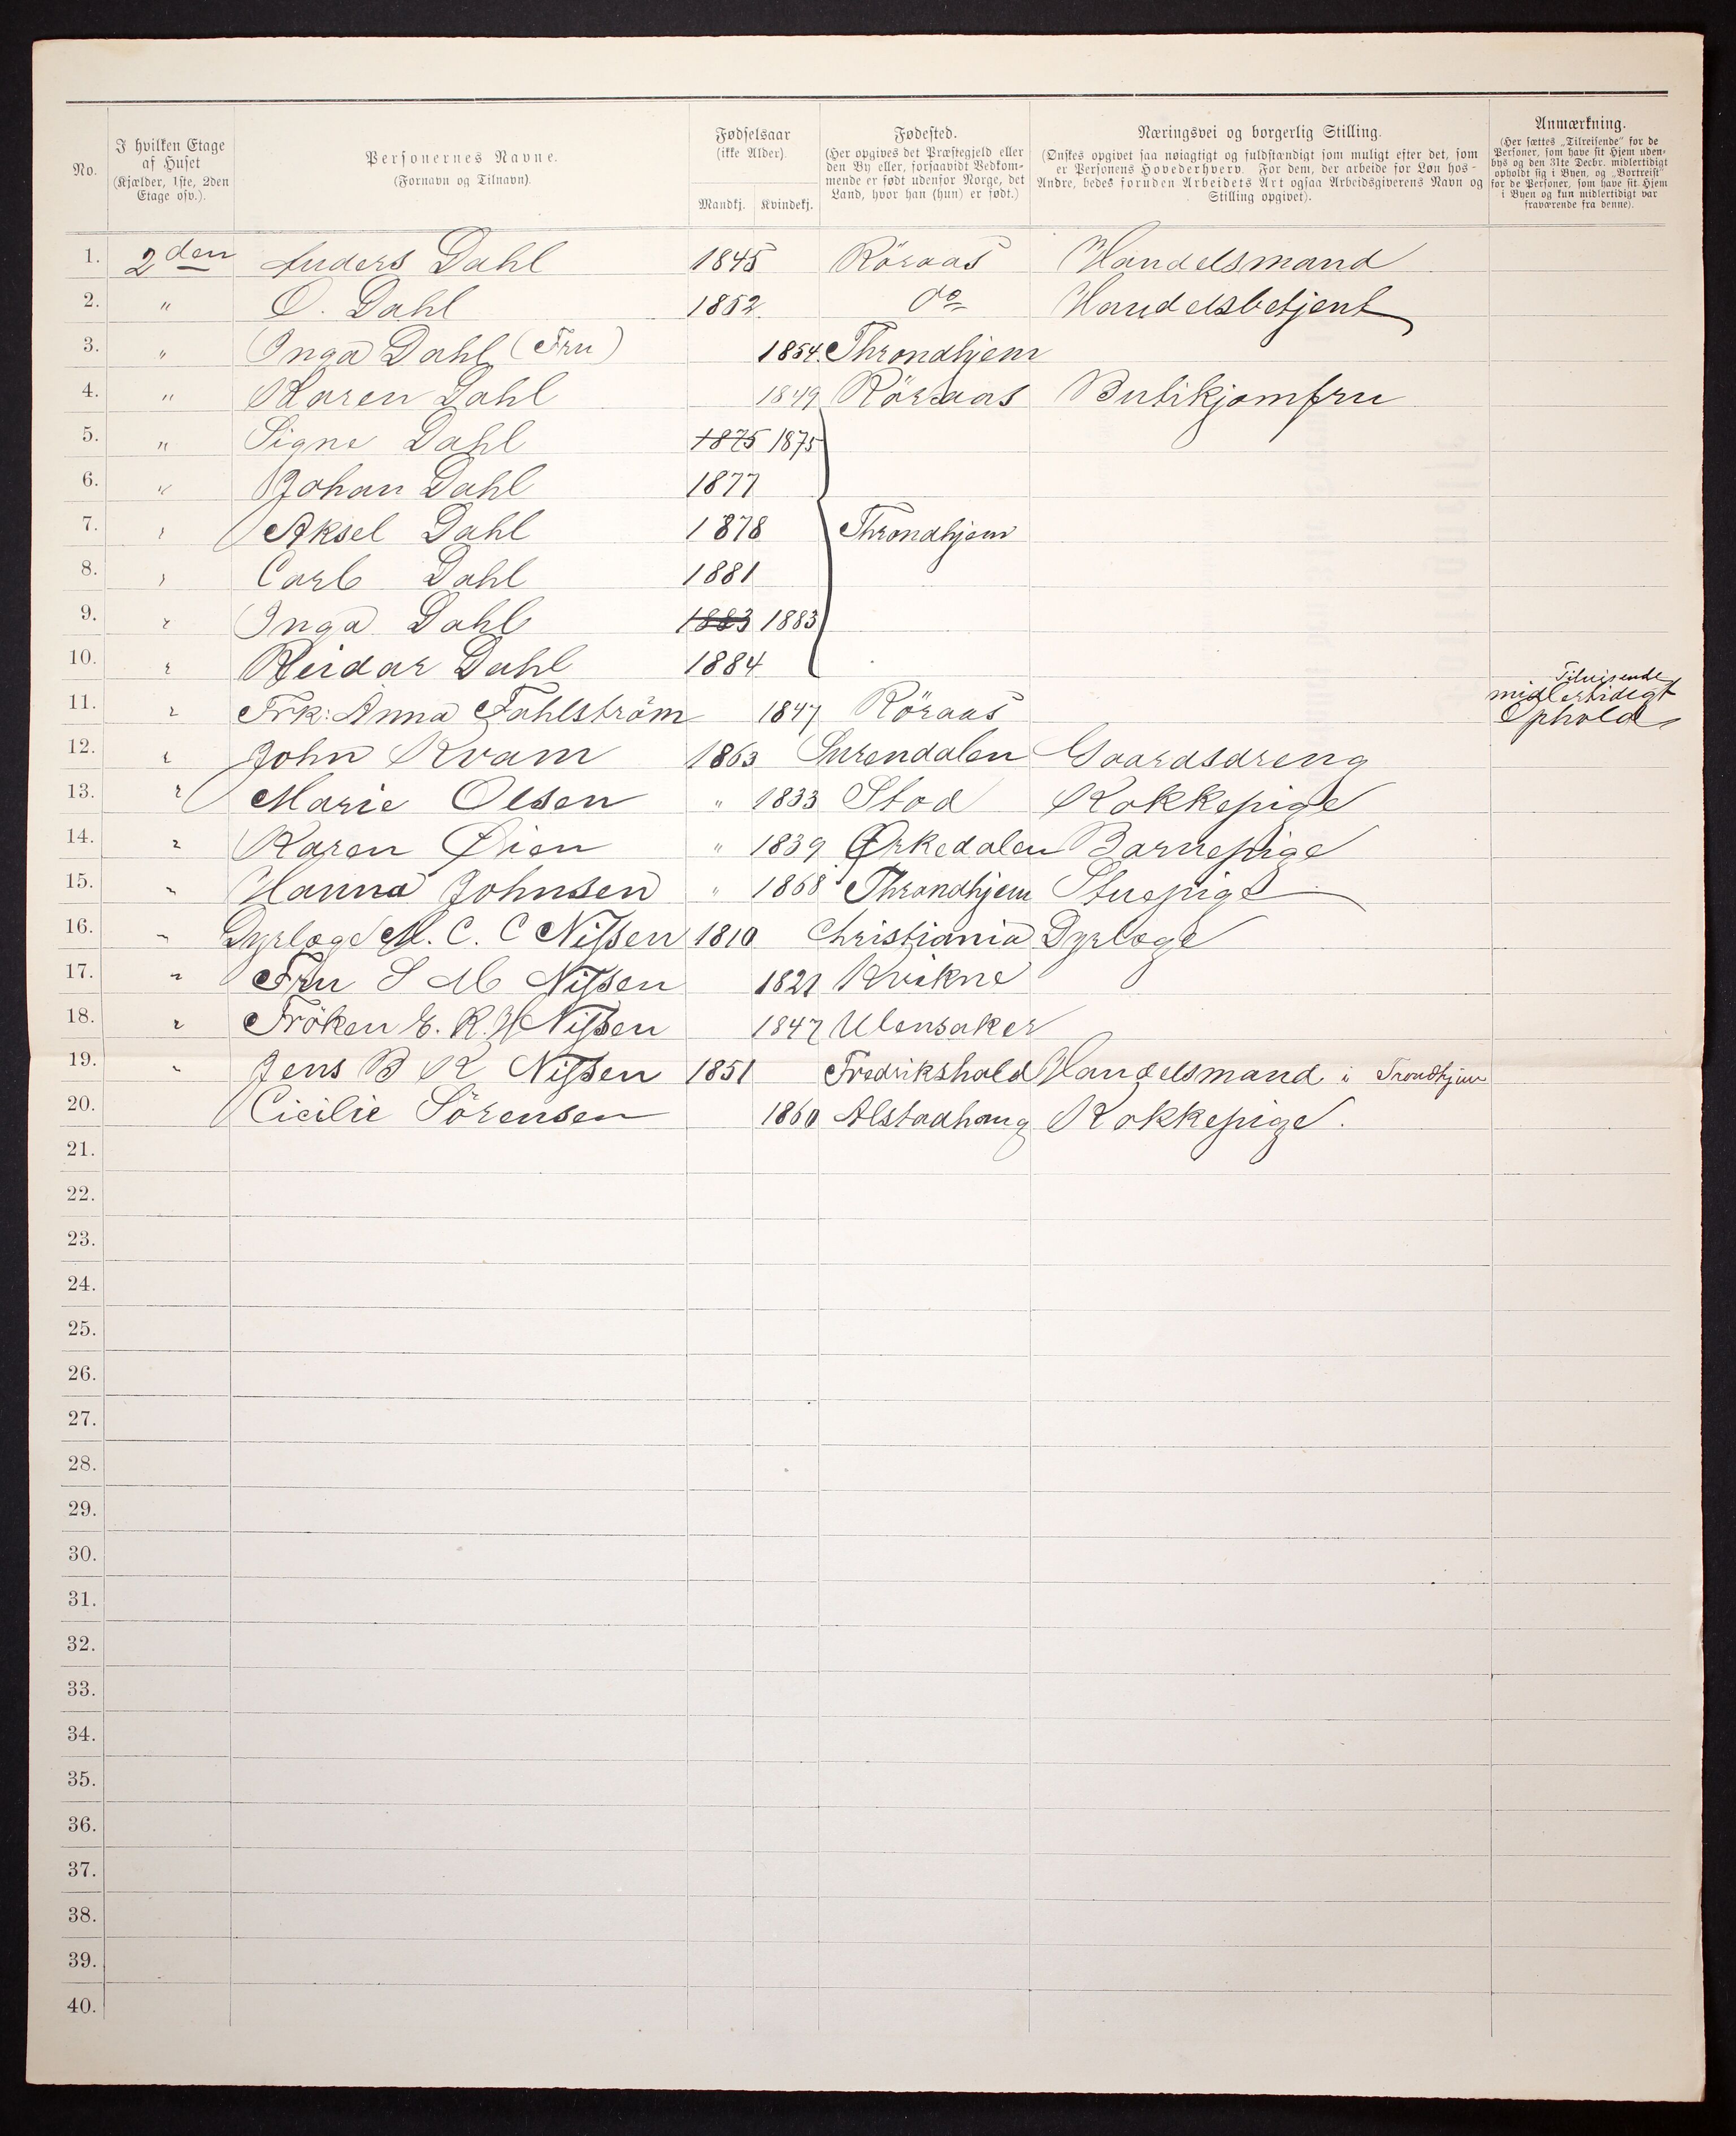 No.
I hvilken Etage af Huset (Kjælder, 1ste, 2den Etage osv.).
Personernes Navne. (Fornavn og Tilnavn).
Fødselsaar (ikke Alder).
Mandkj. Kvindekj.
Fødested. (Her opgives det Præstegjeld eller den By eller, forsaavidt Vedkommende er født udenfor Norge, det Land, hvor han (hun) er født.)
Næringsvei og borgerlig Stilling. (Ønskes opgivet saa nøiagtigt og fuldstændigt som muligt efter det, som er Personens Hovederhverv. For dem, der arbeide for Løn hos Andre, bedes foruden Arbeidets Art ogsaa Arbeidsgiverens Navn og Stilling opgivet).
Anmærkning. (Her sættes „Tilreisende" for de Personer, som have sit Hjem udenbys og den 31te Decbr. midlertidigt opholdt sig i Byen, og „Bortreist" for de Personer, som have sit Hjem i Byen og kun midlertidigt var fraværende fra denne).
1. 2den Anders Dahl 1845 Röraas Handelsmand
2. " O. Dahl 1852 do Handelsbetjent
3. " Inga Dahl (Fru) 1854. Throndhjem
4. " Karen Dahl 1849 Röraas Butikjomfru
5. " Signe Dahl 1875 1875
6. " Johan Dahl 1877
7. " Aksel Dahl 1878 Throndhjem
8. " Carl Dahl 1881
9. " Inga Dahl 1883 1883
10. " Reidar Dahl 1884
11. " Frk: Anna Fahlström 1847 Röraas Tilreisende midlertidigt Ophold
12. " John Kvam 1863 Surendalen Gaardsdreng
13. " Marie Olsen " 1833 Stod Kokkepige
14. " Karen Øien " 1839 Ørkedalen Barnepige
15. " Hanna Johnsen " 1868 Throndhjem Stuepige
16. " Dyrlæge M. C. C Nissen 1810 Christiania Dyrlæge
17. " Fru S M Nissen 1821 Kvikne
18. " Fröken E. R. H Nissen 1847 Ulensaker
19. " Jens B K Nissen 1851 Fredrikshald Handelsmand i Trondhjem
20. Cicilie Sörensen 1860 Alstadhaug Kokkepige.
21.
22.
23.
24.
25.
26.
27.
28.
29.
30.
31.
32.
33.
34.
35.
36.
37.
38.
39.
40.